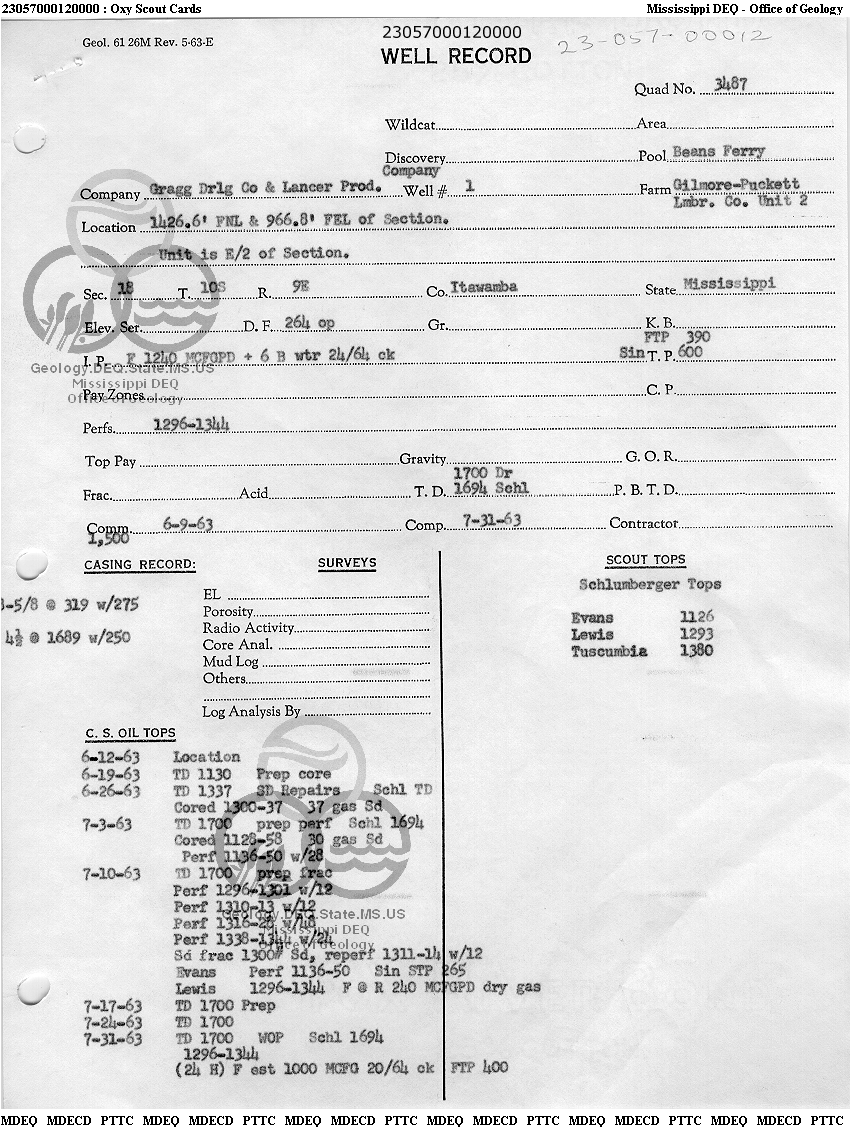 23057000120000 : Oxy Scout Cards Mississippi DEQ - Office of Geology
Geol. 61 26M Rev. 5-63-E
23057000120000 23-057-00012
WELL RECORD
Quad No. 3487
Wildcat Area
Discovery Pool Beans Ferry
Company
Company Gragg Drlg Co & Lancer Prod. Well # 1 Farm Gilmore-Puckett
Lmbr. Co. Unit 2
Location 1426.6' FNL & 966.8' FEL of Section.
Unit is E/2 of Section.
Sec. 18 T. 10S R. 9E Co. Itawamba State Mississippi
Elev. Ser. D. F. 264 op Gr. K. B.
FTP 390
I. P. F 1240 MCFGPD + 6 B wtr 24/64 ck Sin T. P. 600
Geology.DEQ.State.MS.US
Mississippi DEQ
Office of Geology
Pay Zones C. P.
Perfs. 1296-1344
Top Pay Gravity G. O. R.
1700 Dr
Frac. Acid T. D. 1694 Schl P. B. T. D.
Comm. 6-9-63 Comp. 7-31-63 Contractor
1,500
CASING RECORD: SURVEYS SCOUT TOPS
Schlumberger Tops
EL
-5/8 @ 319 w/275 Porosity Evans 1126
Radio Activity Lewis 1293
4½ @ 1689 w/250 Core Anal. Tuscumbia 1380
Mud Log
Others
Log Analysis By
C. S. OIL TOPS
6-12-63 Location
6-19-63 TD 1130 Prep core
6-26-63 TD 1337 SD Repairs Schl TD
Cored 1300-37 37 gas Sd
7-3-63 TD 1700 prep perf Schl 1694
Cored 1128-58 30 gas Sd
Perf 1136-50 w/28
7-10-63 TD 1700 prep frac
Perf 1296-1301 w/12
Perf 1310-13 w/12
Geology.DEQ.State.MS.US
Perf 1316-28 w/48
Mississippi DEQ
Perf 1338-1344 w/24
Office of Geology
Sd frac 1300# Sd, reperf 1311-14 w/12
Evans Perf 1136-50 Sin STP 265
Lewis 1296-1344 F @ R 240 MCFGPD dry gas
7-17-63 TD 1700 Prep
7-24-63 TD 1700
7-31-63 TD 1700 WOP Schl 1694
1296-1344
(24 H) F est 1000 MCFG 20/64 ck FTP 400
MDEQ MDECD PTTC MDEQ MDECD PTTC MDEQ MDECD PTTC MDEQ MDECD PTTC MDEQ MDECD PTTC MDEQ MDECD PTTC